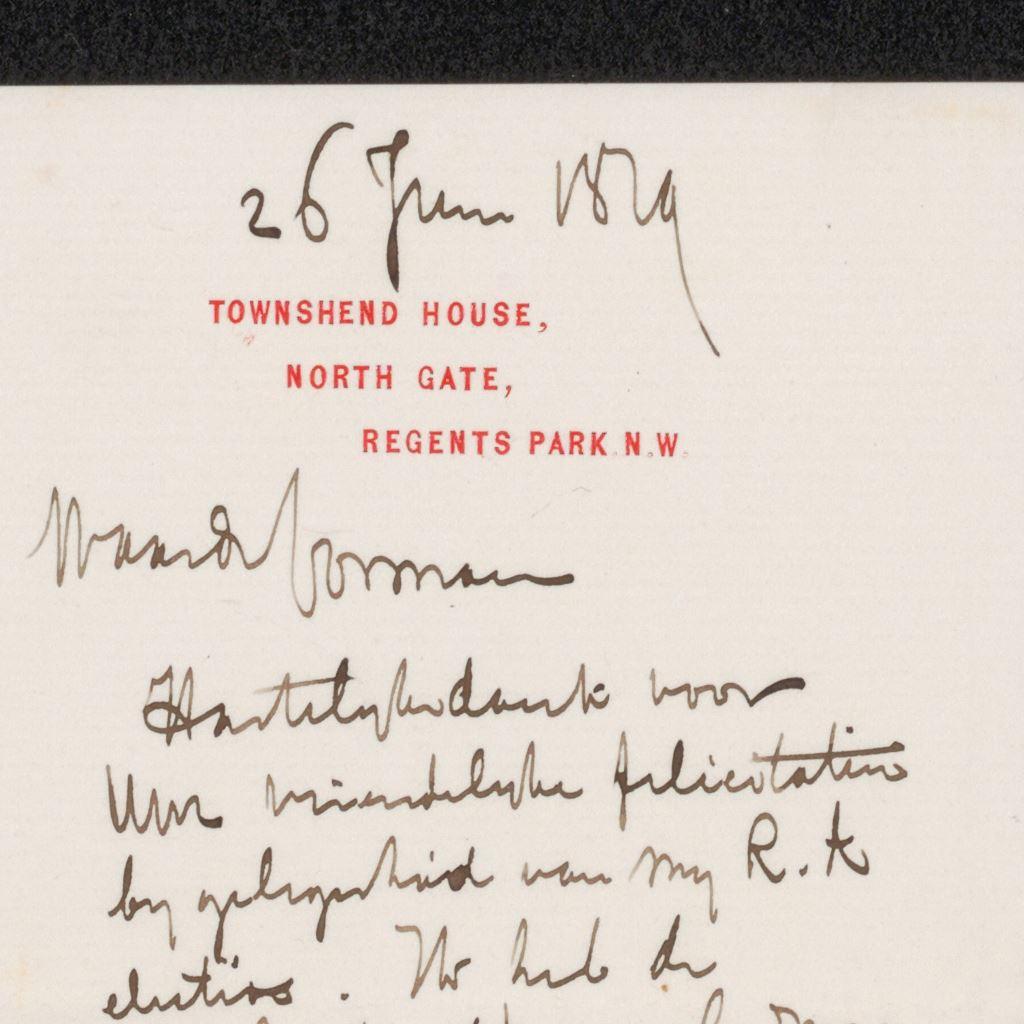 26 Juni 1879
TOWNSHEND HOUSE,
NORTH GATE,
REGENTS PARK. N.W.
Waarde Vorman
Hartelyke dank voor
Uwe vriendelyke felicitatien
by gelegenheid van my R. A
electios. We heb de